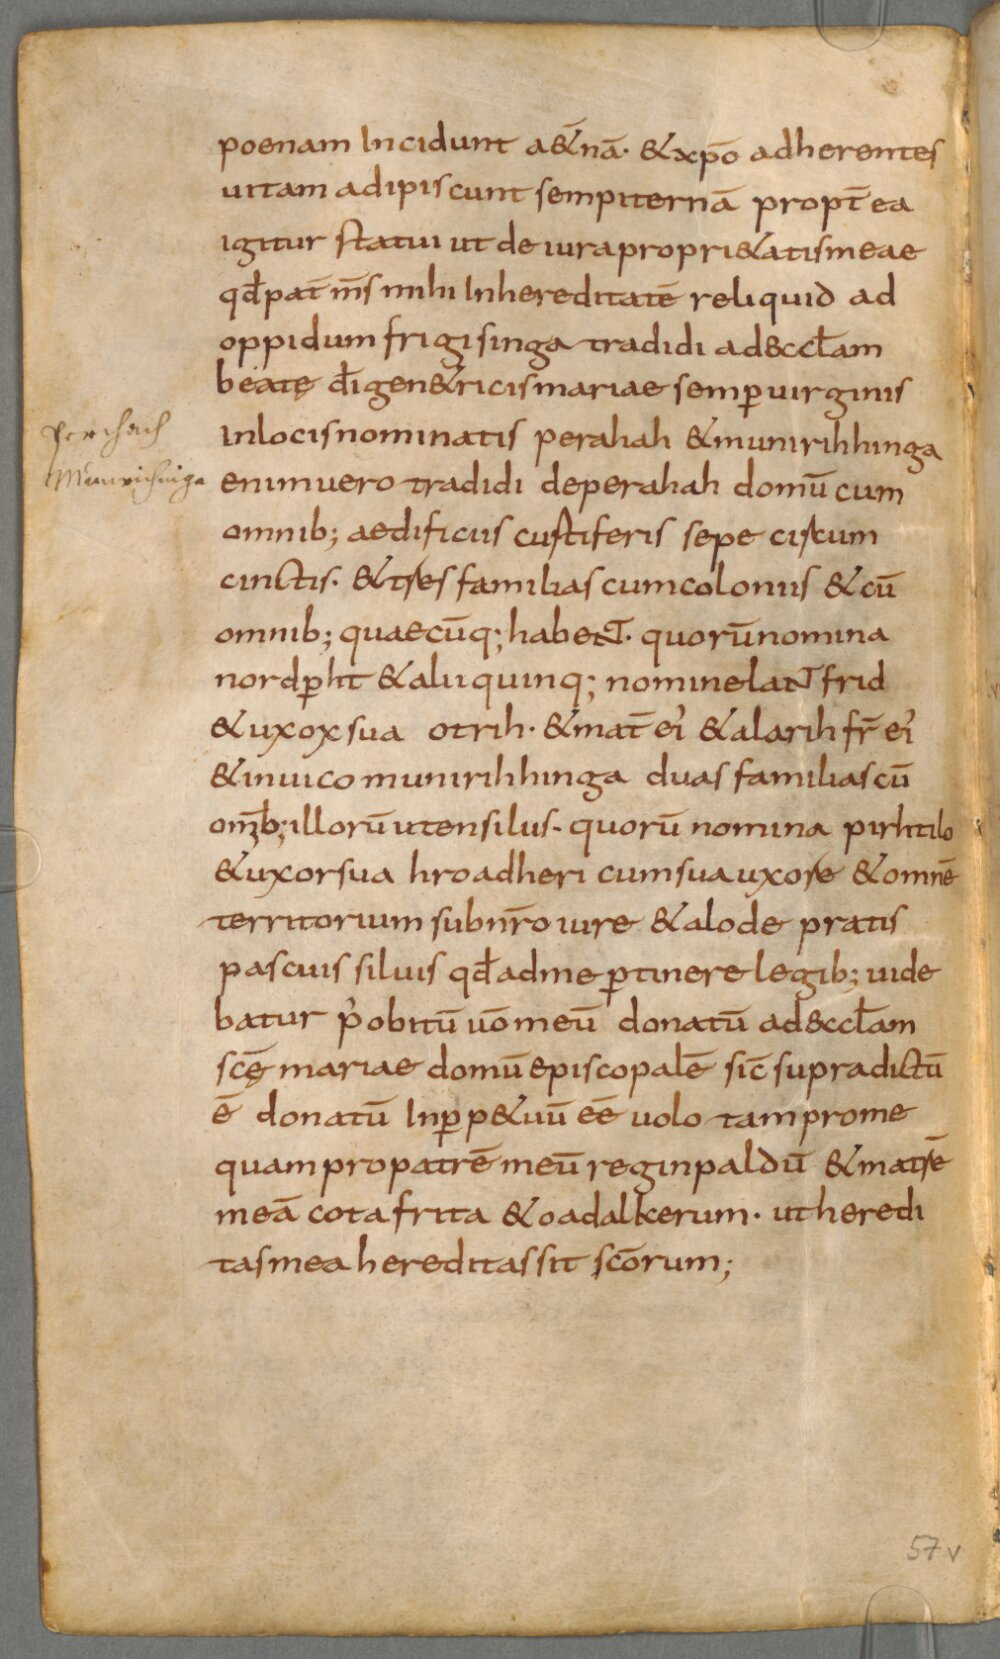 poenam Incidunt a&nā· &xp̄o adherentes
uitam adipiscunt sempiternā propt̄ ea
igitur statui ut de iura propri&atis meae
qđ pat̄ m̄s mihi In hereditatē reliquid ad
oppidum frigisinga tradidi ad&ccl̄am
beate d̄i gen&ricis mariae semp̄ uirginis
In locis nominatis perahah &munirihhinga
Perchach
enimuero tradidi deperahah domū cum
Munrichinga
omnib; aedificiis custiferis sepe circum
cinctis· &tres familias cumcoloniis &cū
omnib; quaecūq; habeNT· quorū nomina
nordp̄ht &alii quinq; nomine laNTfrid
&uxor sua otrih· &mat̄ ei' &alarih fr̄ ei'
&inuico munirihhinga duas familias cū
om̄ib; illorū utensilus· quorū nomina pirhtilo
&uxor sua hroadheri cumsua uxore &omnē
territorium sub nr̄o iure &alode pratis
pascuis siluis qđ adme p̄tinere legib; uide
batur p' obitū uō meū donatū ad&ccl̄am
scę̄ mariae domū episcopalē sic̄ supradictū
ē donatū Inp̄p&uū eē uolo tam prome
quam propatrē meū reginpaldū &matrē
meā cotafrita &oadalkerum· ut heredi
tas mea hereditas sit sc̄orum;
57v